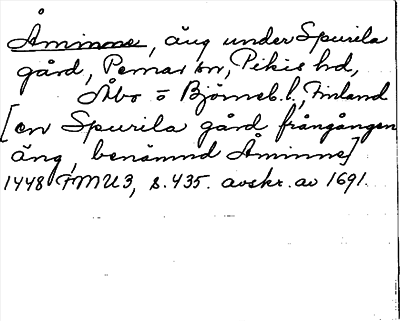 Åminne, äng under Spurila
gård, Pemar sn, Pikis hd,
Åbo o Björneb. l., Finland
[en Spurila gård frångången
äng, benämnd Åminne]
1448 FMU 3, s. 435. avskr. av 1691.